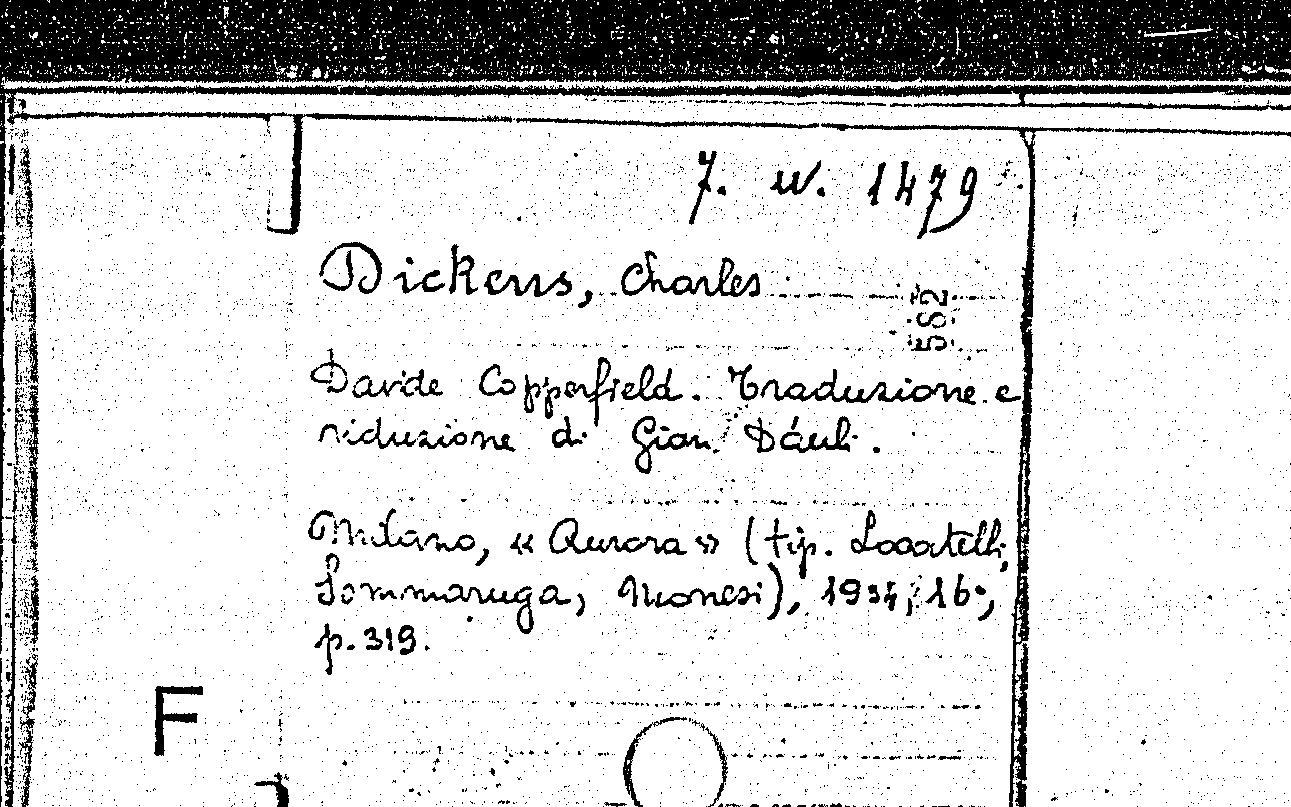 7. w. 1479
Dickens, Charles
552
Davide Copperfield. Traduzione e
riduzione di Gian Dáuli.
Milano, « Aurora » (tip. Locatelli,
Sommaruga, Monesi), 1934, 16°,
p. 319.
F